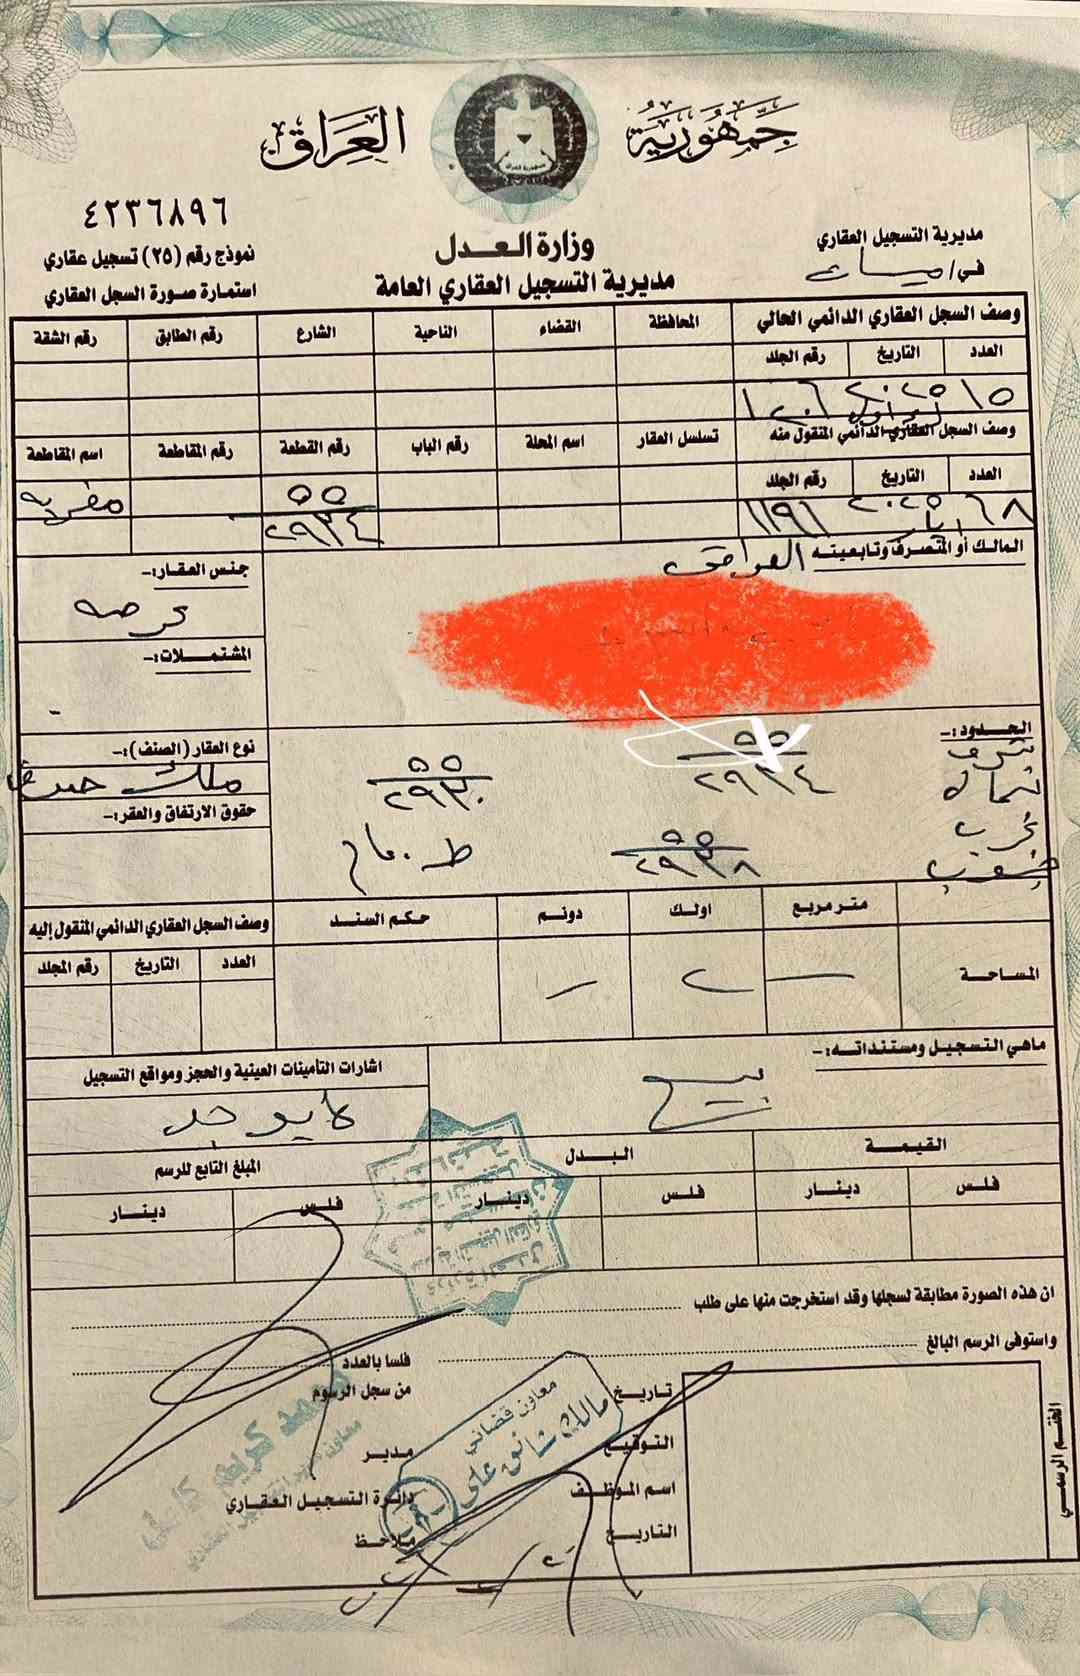 جمهورية العراق
٤٢٣٦٨٩٦
وزارة العدل
مديرية التسجيل العقاري العامة
مديرية التسجيل العقاري
في / ميسان
نموذج رقم (٢٥) تسجيل عقاري
استمارة صورة السجل العقاري
وصف السجل العقاري الدائمي الحالي
المحافظة القضاء الناحية الشارع رقم الطابق رقم الشقة
العدد التاريخ رقم الجلد
١٥ ٢٠٢٥ ١٢٠٦
وصف السجل العقاري الدائمي المنقول منه
تسلسل العقار اسم المحلة رقم الباب رقم القطعة رقم المقاطعة اسم المقاطعة
العدد التاريخ رقم الجلد
٥٥
٢٩٣٤
٦٨ ايار ٢٠٢٥ ١١٩٦
المالك أو المتصرف وتابعيته العراقي
جنس العقار:-
عرصه
المشتملات:-
-
الحدود:-
نوع العقار (الصنف):-
ملك صرف
حقوق الارتفاق والعقر:-
شرق
شمال ٥٥
٢٩٣٤
٥٥
٢٩٣٠
غرب
جنوب ٥٥
٢٩٣٨
ط.عام
متر مربع اولك دونم حكم السند
المساحة - ٢ -
وصف السجل العقاري الدائمي المنقول إليه
العدد التاريخ رقم المجلد
ماهي التسجيل ومستنداته:-
بيع
اشارات التأمينات العينية والحجز ومواقع التسجيل
لايوجد
القيمة البدل المبلغ التابع للرسم
فلس دينار فلس دينار فلس دينار
ان هذه الصورة مطابقة لسجلها وقد استخرجت منها على طلب
واستوفى الرسم البالغ
فلسا بالعدد
من سجل الرسوم
تاريخ
التوقيع
اسم الموظف
التاريخ
مدير
دائرة التسجيل العقاري
ملاحظ
الختم الرسمي
معاون قضائي
مالك شانق علي